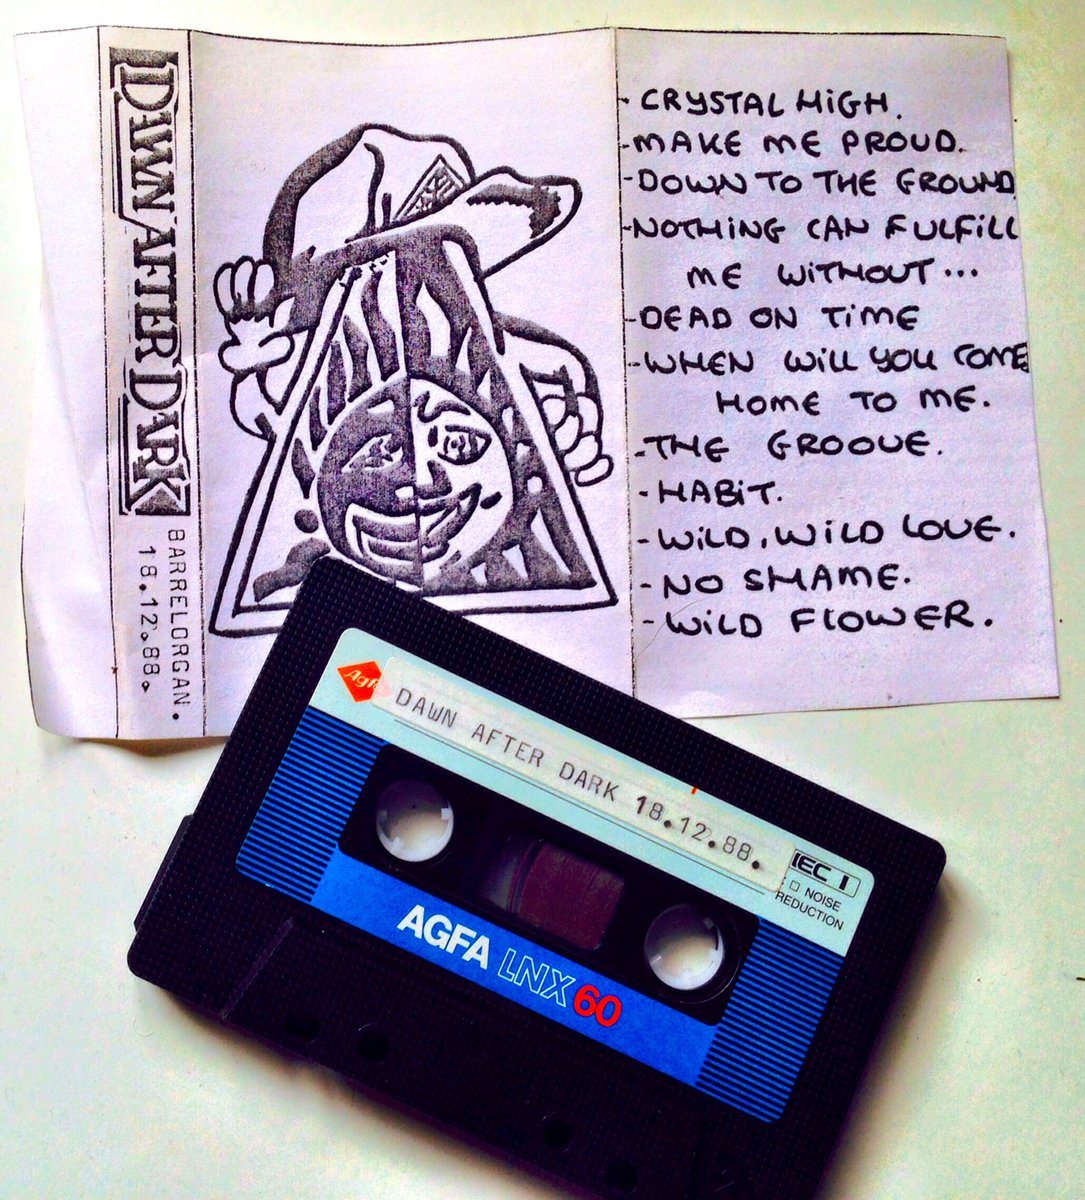 DAWN AFTER DARK
BARRELORGAN.
18.12.88.
- CRYSTAL HIGH.
- MAKE ME PROUD.
- DOWN TO THE GROUND
- NOTHING CAN FULFILL
ME WITHOUT...
- DEAD ON TIME
- WHEN WILL YOU COME
HOME TO ME.
- THE GROOVE.
- HABIT.
- WILD, WILD LOVE.
- NO SHAME.
- WILD FLOWER.
Agfa
DAWN AFTER DARK 18.12.88.
IEC I
NOISE
REDUCTION
AGFA LNX 60